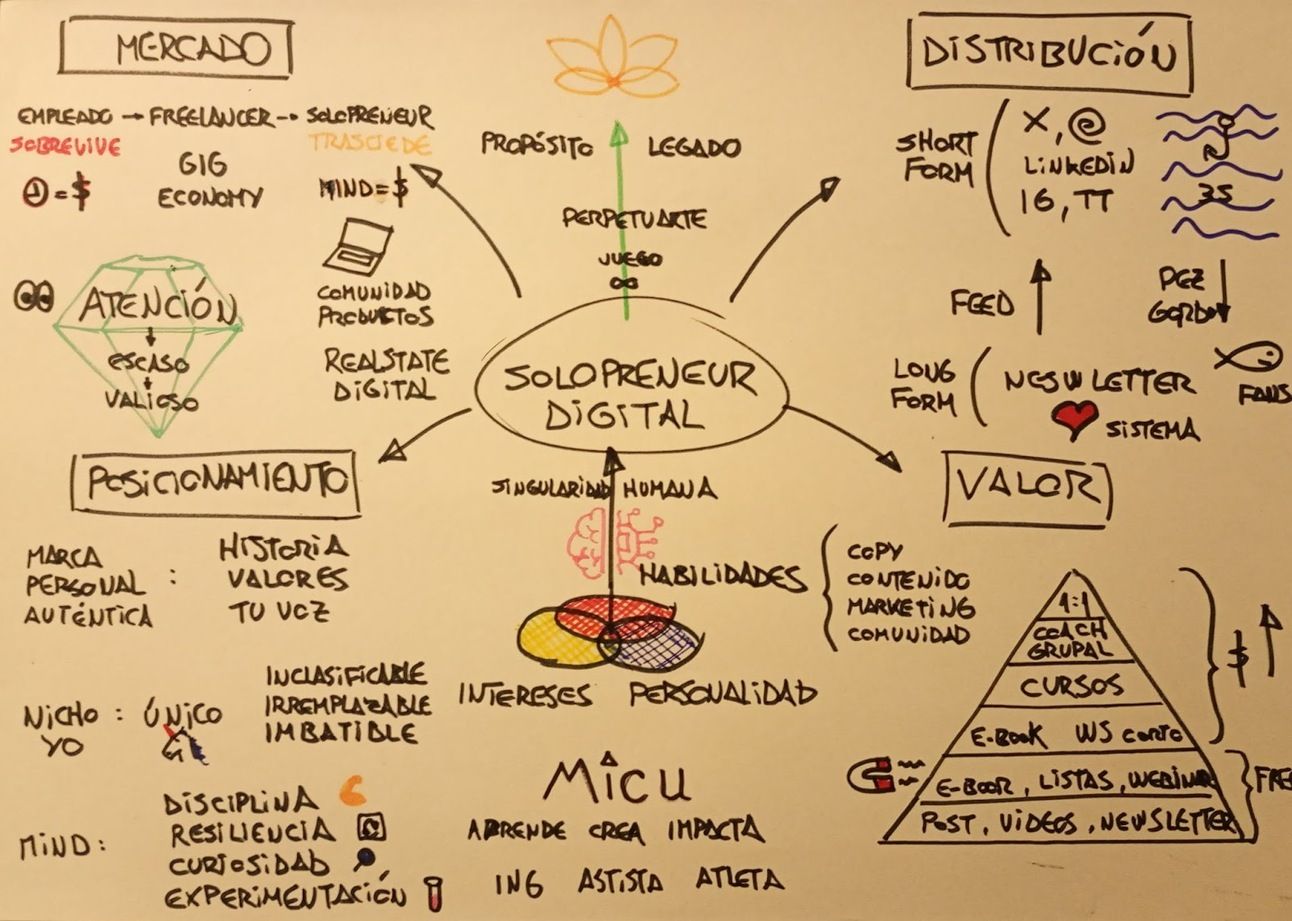 MERCADO
EMPLEADO → FREELANCER → SOLOPRENEUR
SOBREVIVE
TRASCIEDE
= $
GIG
ECONOMY
MIND = $
ATENCIÓN
ESCASO
VALIOSO
COMUNIDAD
PRODUCTOS
REALSTATE
DIGITAL
PROPÓSITO LEGADO
PERPETUARTE
JUEGO
∞
SOLOPRENEUR
DIGITAL
DISTRIBUCIÓN
SHORT
FORM
X, @
LINKEDIN
IG, TT
3S
FEED
PEZ
GORDO
LONG
FORM
NESWLETTER
FANS
SISTEMA
POSICIONAMIENTO
MARCA
PERSONAL :
AUTÉNTICA
HISTORIA
VALORES
TU VOZ
NICHO : ÚNICO
YO
INCLASIFICABLE
IRREMPLAZABLE
IMBATIBLE
MIND:
DISCIPLINA
RESILIENCIA
CURIOSIDAD
EXPERIMENTACIÓN
SINGULARIDAD HUMANA
HABILIDADES
COPY
CONTENIDO
MARKETING
COMUNIDAD
INTERESES PERSONALIDAD
MICU
APRENDE CREA IMPACTA
ING ASTISTA ATLETA
VALOR
1:1
COACH
GRUPAL
CURSOS
E-BOOK WS CORTO
E-BOOR, LISTAS, WEBINAR
POST, VIDEOS, NEWSLETTER
$
FREE